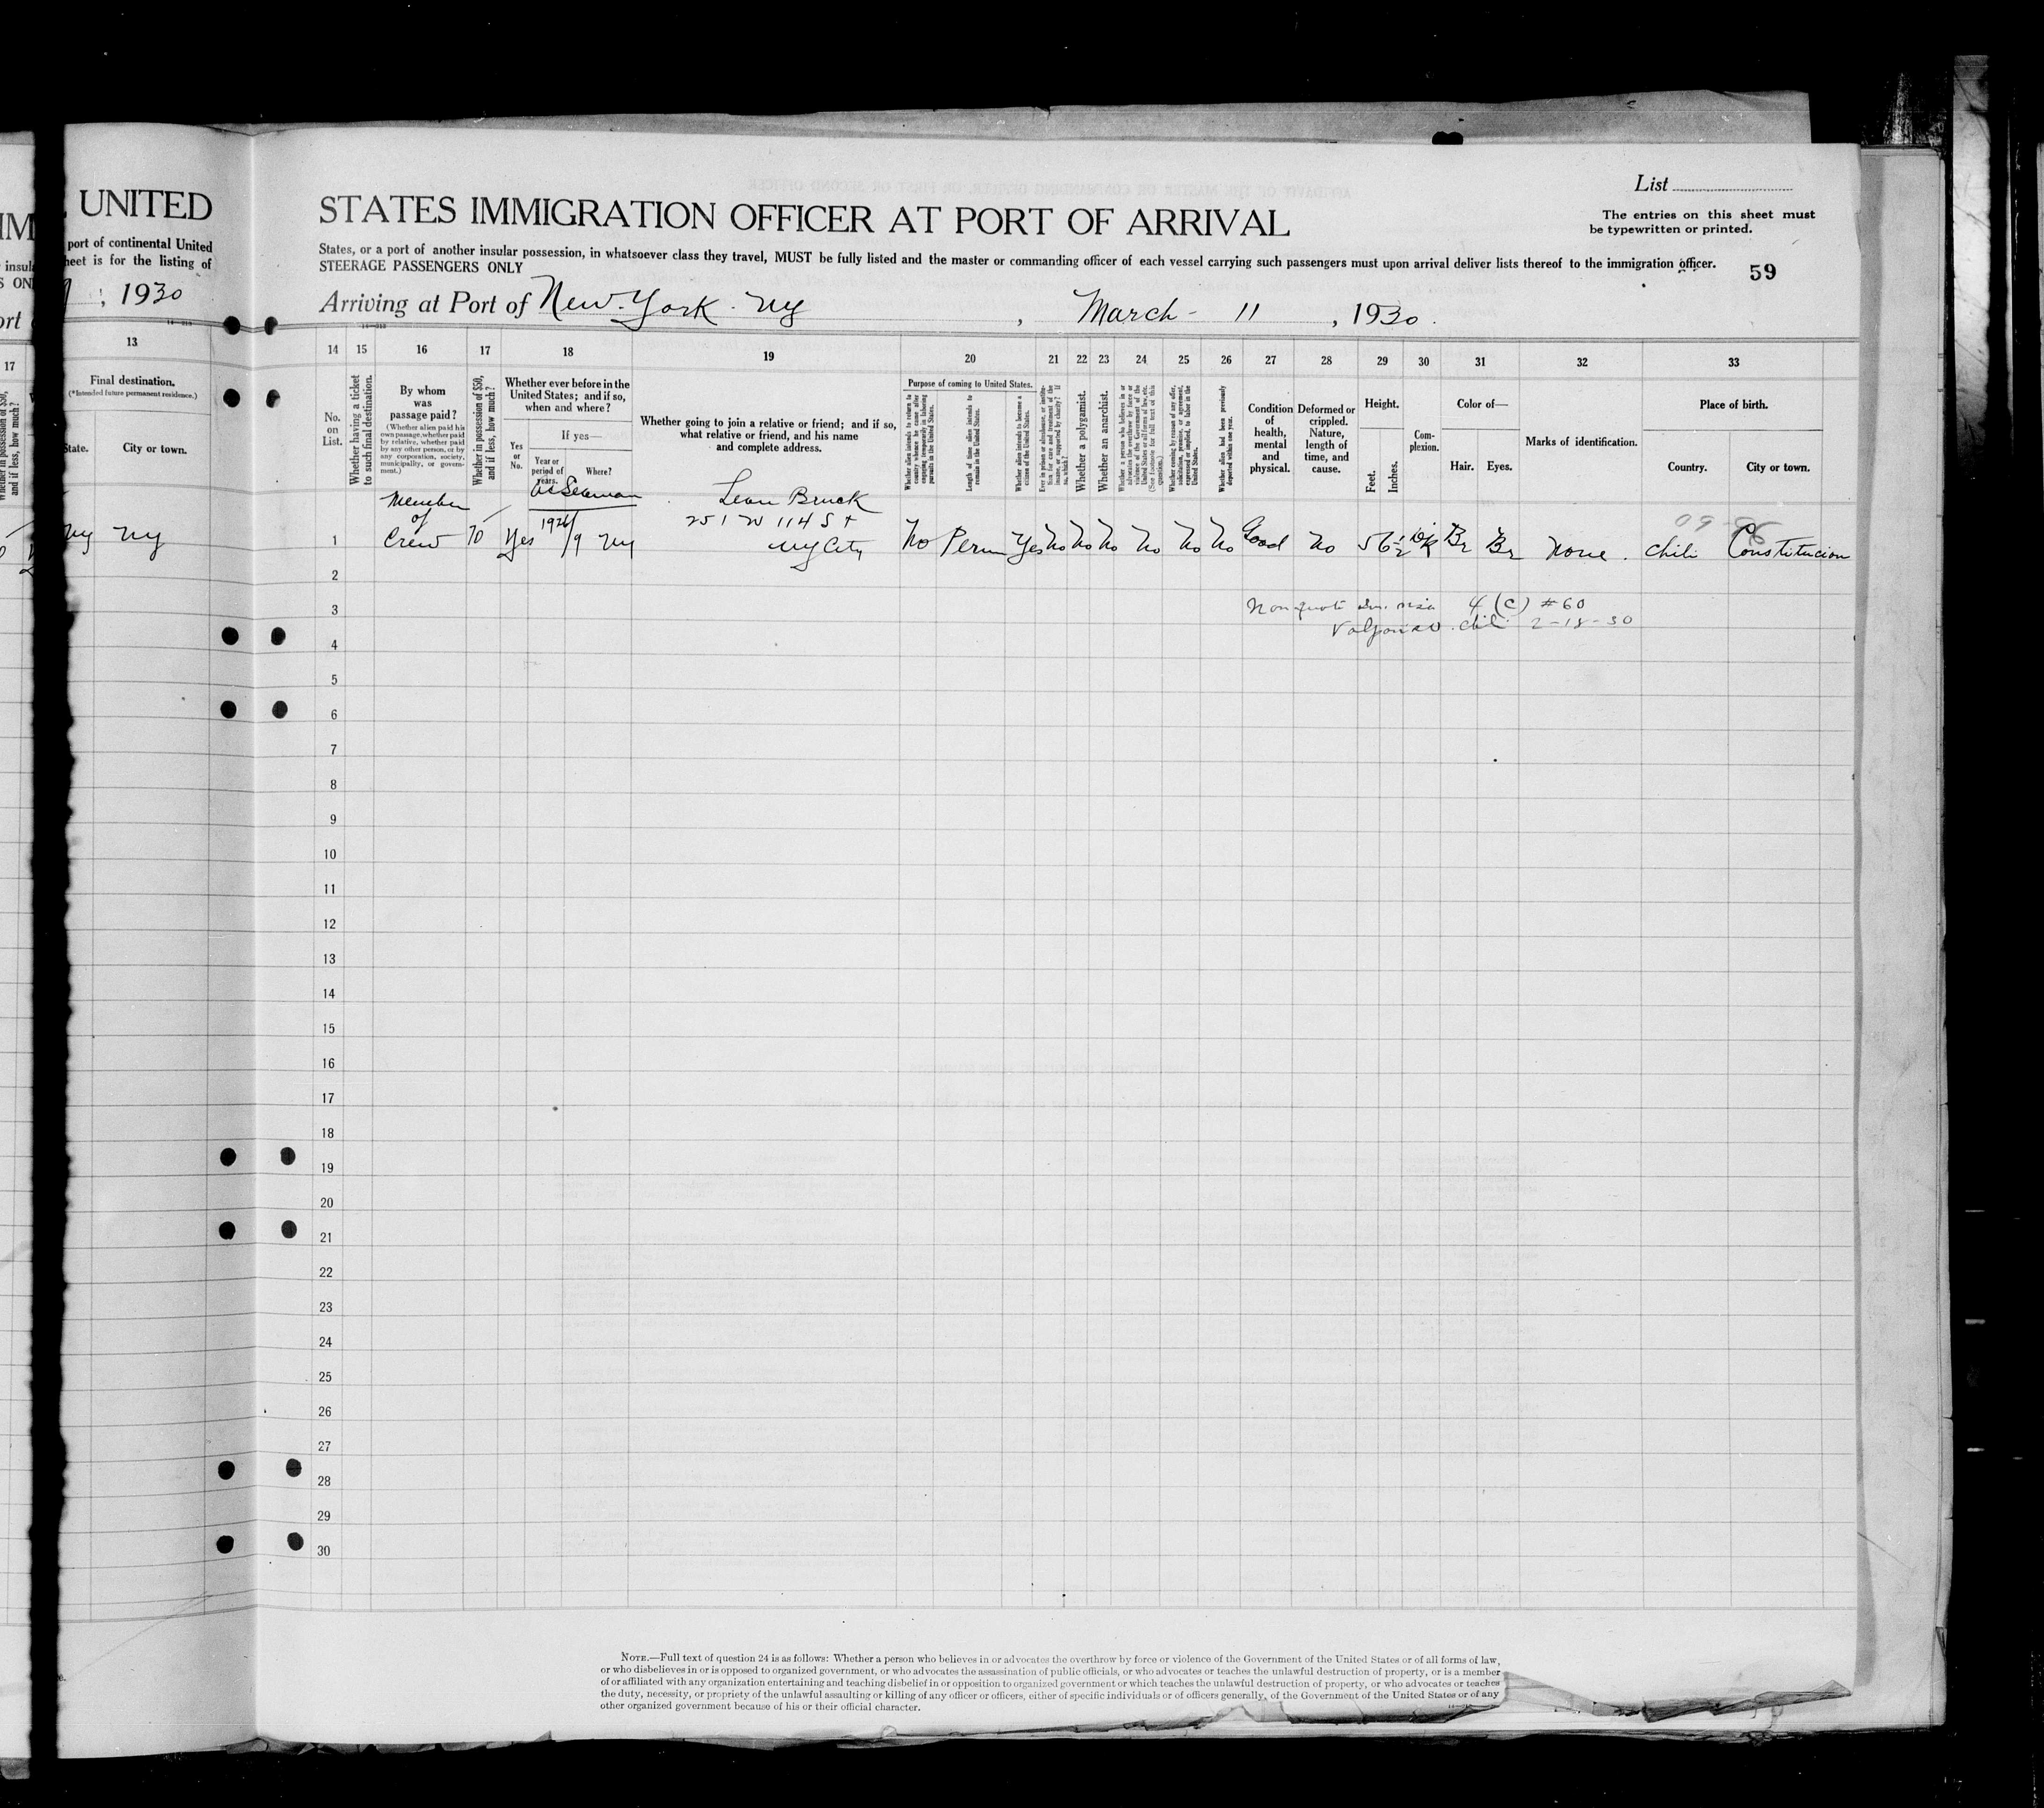 UNITED
port of continental United
heet is for the listing of
, 1930
13
Final destination.
(*Intended future permanent residence.)
State.
City or town.
Ny Ny
17
List
STATES IMMIGRATION OFFICER AT PORT OF ARRIVAL
The entries on this sheet must
be typewritten or printed.
States, or a port of another insular possession, in whatsoever class they travel, MUST be fully listed and the master or commanding officer of each vessel carrying such passengers must upon arrival deliver lists thereof to the immigration officer.
STEERAGE PASSENGERS ONLY
59
Arriving at Port of New York Ny , March - 11 , 1930.
14 15 16 17 18 19 20 21 22 23 24 25 26 27 28 29 30 31 32 33
No.
on
List.
Whether having a ticket
to such final destination.
By whom
was
passage paid?
(Whether alien paid his
own passage, whether paid
by relative, whether paid
by any other person, or by
any corporation, society,
municipality, or govern-
ment.)
Whether in possession of $50,
and if less, how much?
Whether ever before in the
United States; and if so,
when and where?
Yes
or
No.
If yes—
Year or
period of
years.
Where?
Whether going to join a relative or friend; and if so,
what relative or friend, and his name
and complete address.
Purpose of coming to United States.
Whether alien intends to return to
country whence he came after
engaging temporarily in laboring
pursuits in the United States.
Length of time alien intends to
remain in the United States.
Whether alien intends to become a
citizen of the United States.
Ever in prison or almshouse, or institu-
tion for care and treatment of the
insane, or supported by charity? If
so, which?
Whether a polygamist.
Whether an anarchist.
Whether a person who believes in or
advocates the overthrow by force or
violence of the Government of the
United States or all forms of law, etc.
(See footnote for full text of this
question.)
Whether coming by reason of any offer,
solicitation, promise, or agreement,
expressed or implied, to labor in the
United States.
Whether alien had been previously
deported within one year.
Condition
of
health,
mental
and
physical.
Deformed or
crippled.
Nature,
length of
time, and
cause.
Height.
Feet.
Inches.
Com-
plexion.
Color of—
Hair. Eyes.
Marks of identification.
Place of birth.
Country. City or town.
Member
of
Crew
as Seaman
Leon Bruck
251 W 114 St
Ny City
1 70 Yes Ny No Perm Yes No No No No No No Good No 5 6½ Dk Br Br None. Chili Constitucion
2
3
Nonquota Im. visa 4 (c) #60
Valparaiso. Chili 2-18-30
4
5
6
7
8
9
10
11
12
13
14
15
16
17
18
19
20
21
22
23
24
25
26
27
28
29
30
NOTE.—Full text of question 24 is as follows: Whether a person who believes in or advocates the overthrow by force or violence of the Government of the United States or of all forms of law,
or who disbelieves in or is opposed to organized government, or who advocates the assassination of public officials, or who advocates or teaches the unlawful destruction of property, or is a member
of or affiliated with any organization entertaining and teaching disbelief in or opposition to organized government or which teaches the unlawful destruction of property, or who advocates or teaches
the duty, necessity, or propriety of the unlawful assaulting or killing of any officer or officers, either of specific individuals or of officers generally, of the Government of the United States or of any
other organized government because of his or their official character.